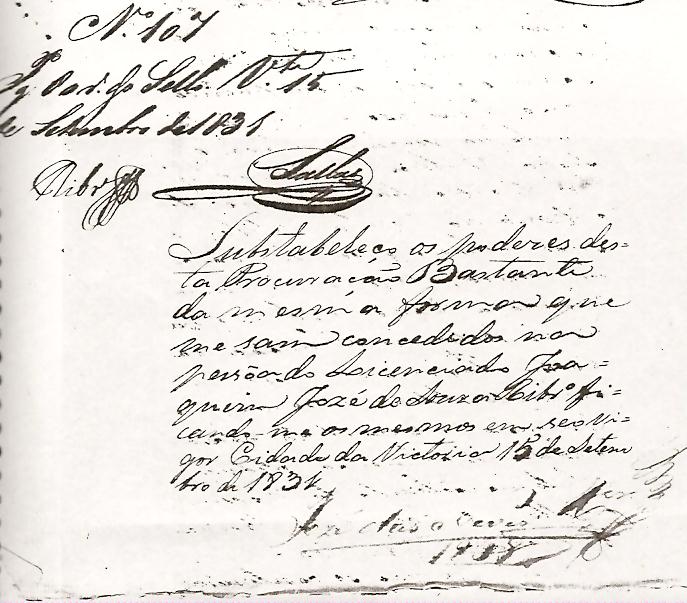 N.º 107
Pg. 80 rs. do Sello. Vta 15
de Setembro de 1831
Ribrº
Substabeleço os poderes des-
ta Procuração Bastante
da mesma forma que
me sam concedidos na
pessoa do Licenciado Joa-
quim Jozé de Souza Ribrº fi-
cando me os mesmos em seo vi-
gor Cidade da Victoria 15 de Setem
bro de 1831